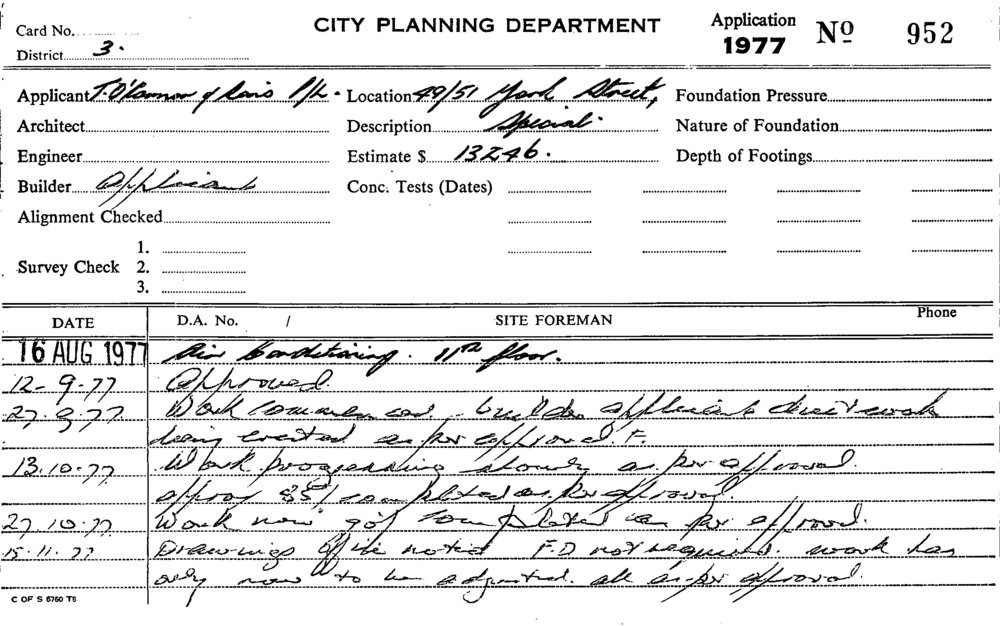 Card No.
CITY PLANNING DEPARTMENT
Application 1977 Nº 952
District 3.
Applicant J. O'Connor & Sons P/L. Location 49/51 York Street, Foundation Pressure
Architect Description Special. Nature of Foundation
Engineer Estimate $ 13246. Depth of Footings
Builder Applicant Conc. Tests (Dates)
Alignment Checked
1.
Survey Check 2.
3.
DATE D.A. No. / SITE FOREMAN Phone
16 AUG 1977 Air Conditioning. 11th floor.
12-9-77 Approved.
27.9.77. Work commenced builder applicant duct work
being erected as per approval F.
13.10.77 Work progressing slowly as per approval.
approx 35% completed as per approval.
27.10.77 Work now completed as per approval.
15.11.77 Drawings noted F.D not required. work has
only now to be adjusted. all as per aproval.
C OF S 6760 T6